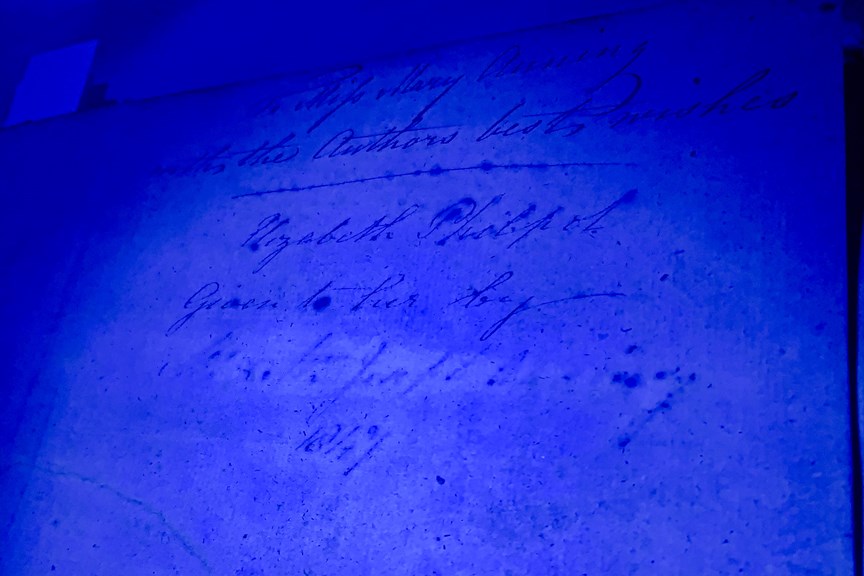 Miss Mary Anning
with the Authors best wishes
Elizabeth Philpot
Given to her by
1847